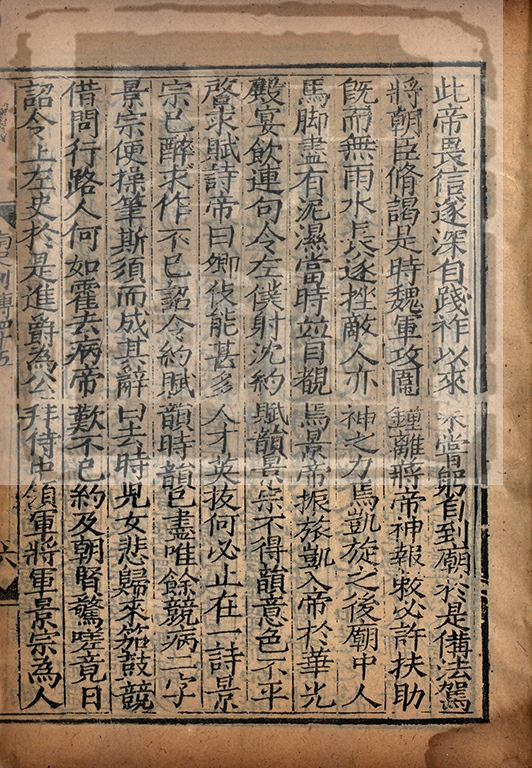 此帝畏信遂深自踐祚以來未嘗躬自到廟於是備法駕
將朝臣脩謁是時魏軍攻圍鍾離蔣帝神報敕必許扶助
旣而無雨水長遂挫敵人亦神之力焉凱旋之後廟中人
馬脚盡有泥濕當時並目覩焉景帝振旅凱入帝於華光
殿宴飲連句令左僕射沈約賦韻景宗不得韻意色不平
啓求賦詩帝曰卿伎能甚多人才英拔何必止在一詩景
宗已醉求作不已詔令約賦韻時韻已盡唯餘競病二字
景宗便操筆斯須而成其辭曰去時兒女悲歸來笳鼓競
借問行路人何如霍去病帝歎不已約及朝賢驚嗟竟日
詔令上左史於是進爵為公拜侍中領軍將軍景宗為人